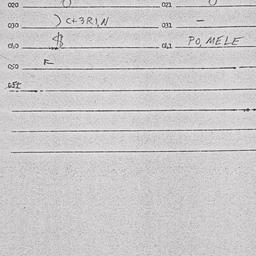 020 021
030 ) C+3RI,N 031 —
040 $ 041 PO, MELE
050 F